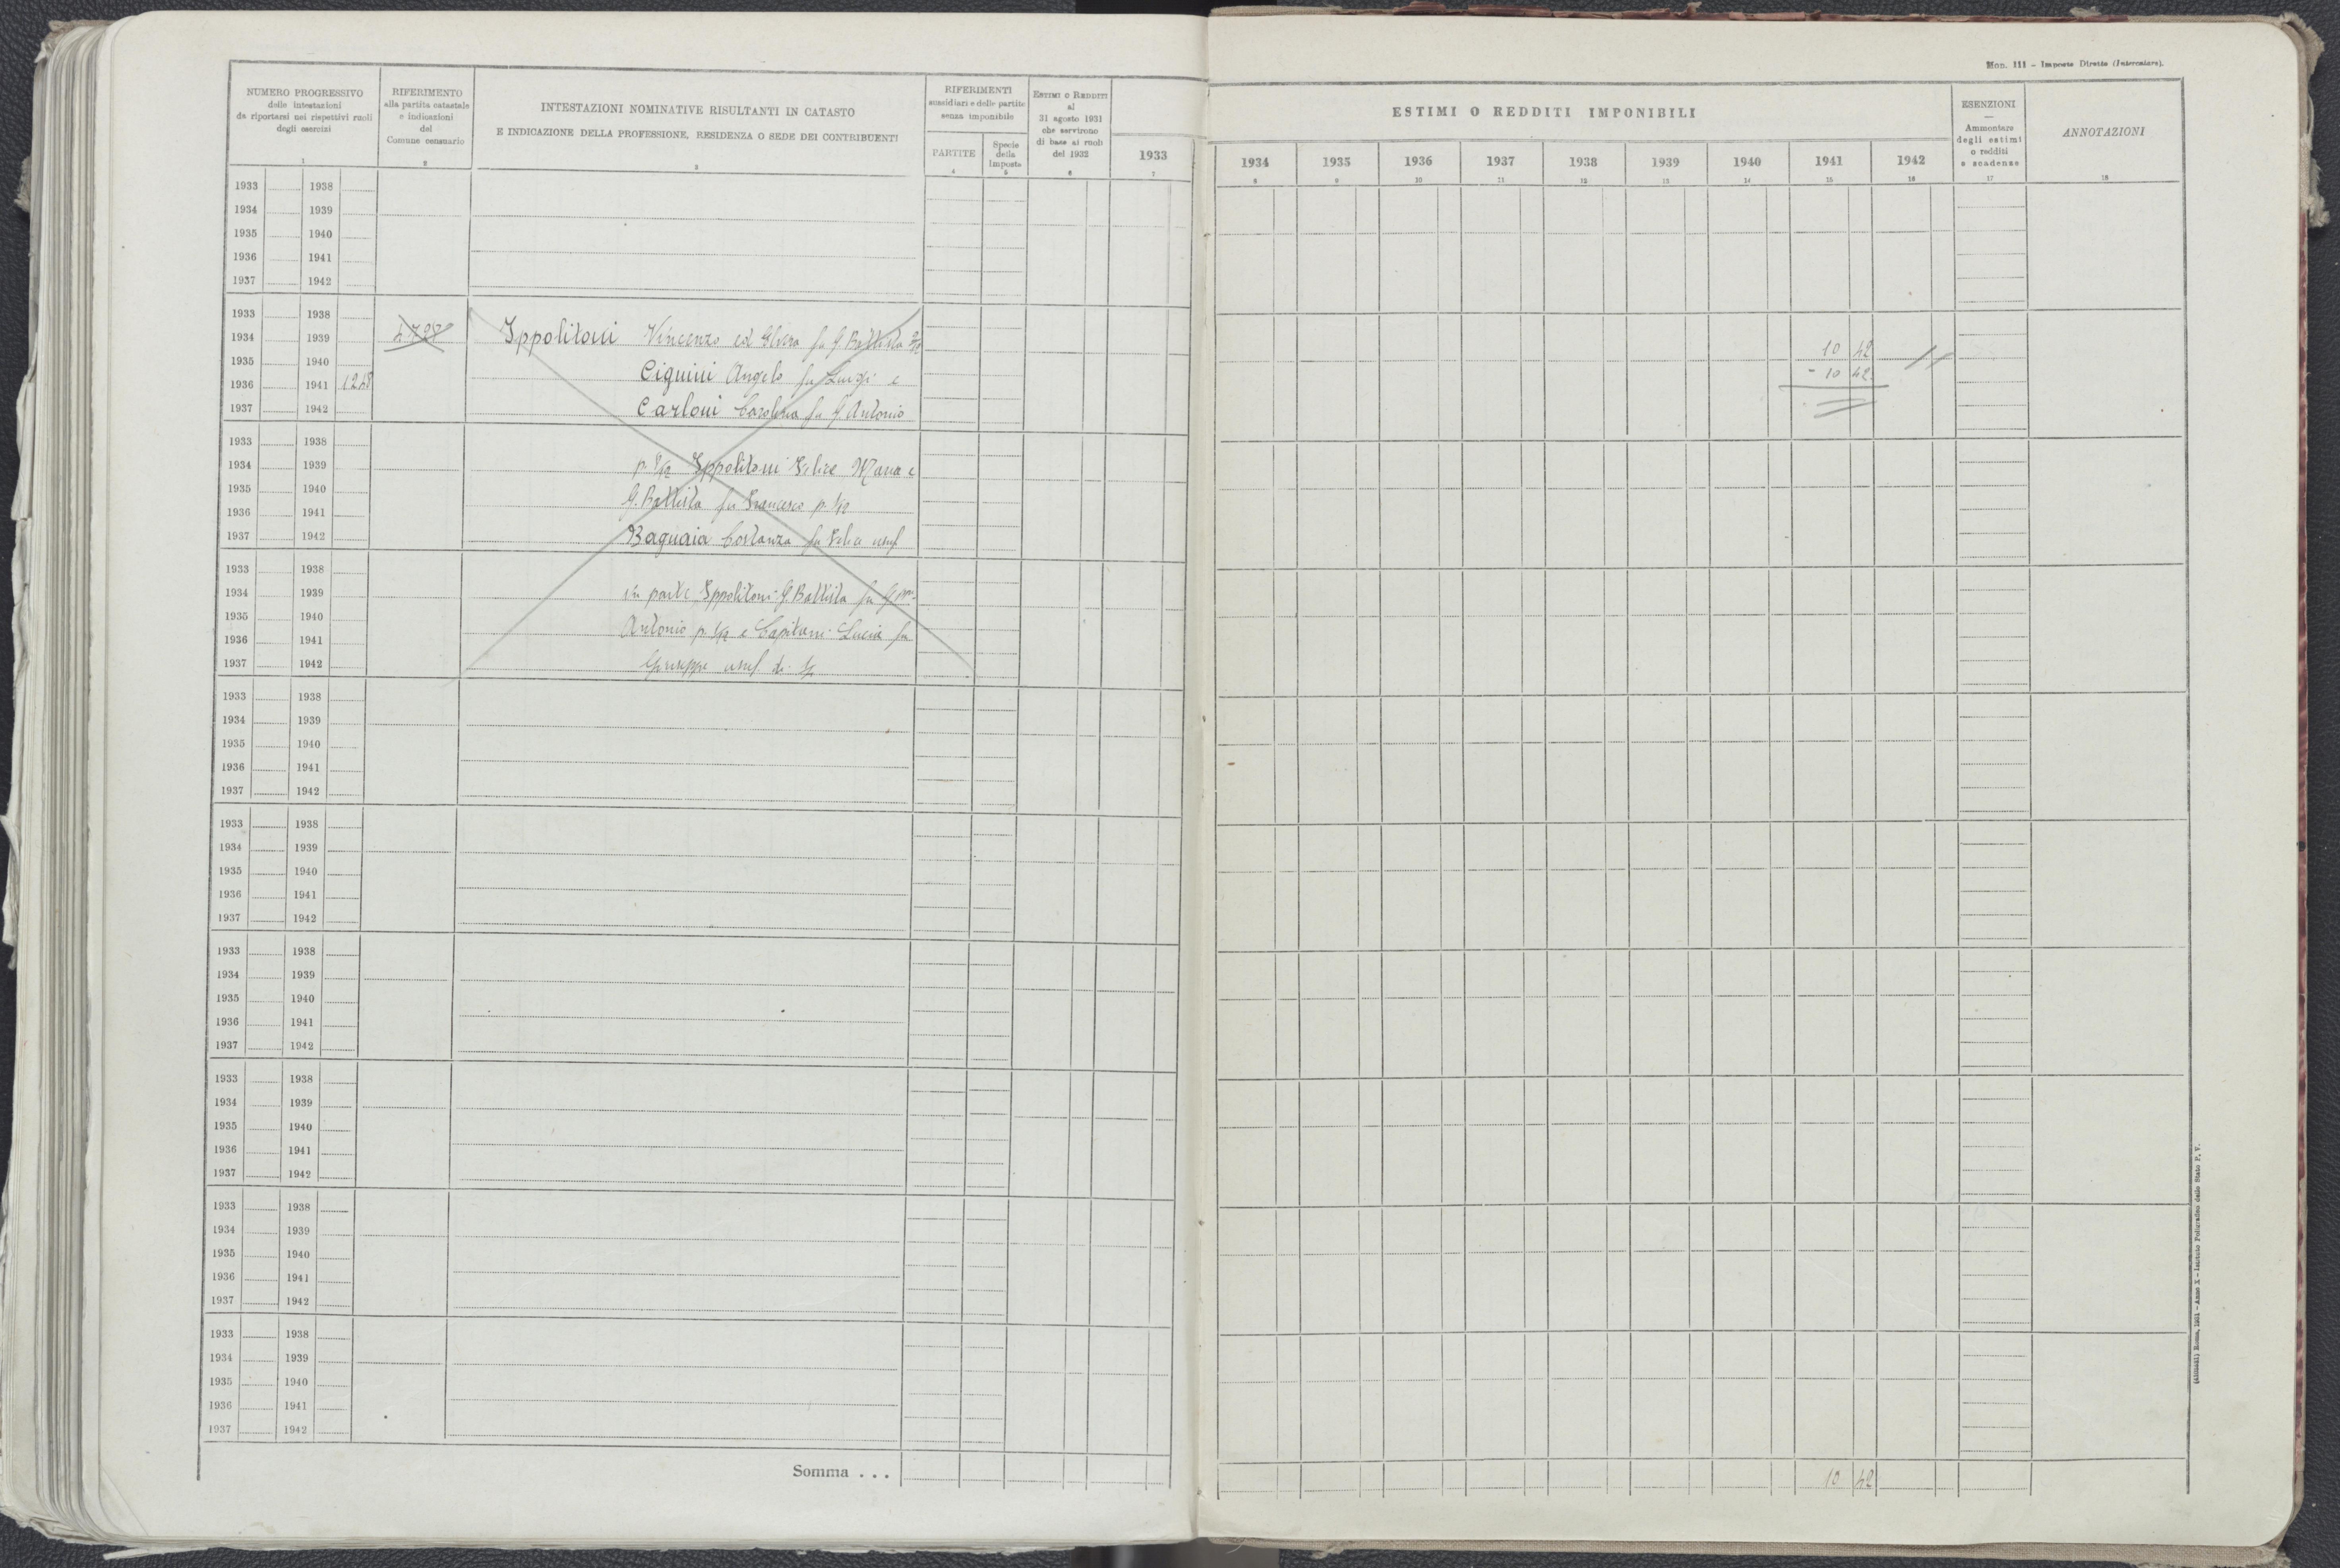 Mod. 111 – Imposte Dirette (Intercalare).
NUMERO PROGRESSIVO
delle intestazioni
da riportarsi nei rispettivi ruoli
degli esercizi
1
RIFERIMENTO
alla partita catastale
e indicazioni
del
Comune censuario
2
INTESTAZIONI NOMINATIVE RISULTANTI IN CATASTO
E INDICAZIONE DELLA PROFESSIONE, RESIDENZA O SEDE DEI CONTRIBUENTI
3
RIFERIMENTI
sussidiari e delle partite
senza imponibile
PARTITE
4
Specie
della
Imposta
5
ESTIMI O REDDITI
al
31 agosto 1931
che servirono
di base ai ruoli
del 1932
6
1933
7
ESTIMI O REDDITI IMPONIBILI
1934 1935 1936 1937 1938 1939 1940 1941 1942
8 9 10 11 12 13 14 15 16
ESENZIONI
—
Ammontare
degli estimi
o redditi
e scadenze
17
ANNOTAZIONI
18
1933 1938
1934 1939
1935 1940
1936 1941
1937 1942
1933 1938
1934 1939 4727 Ippolitoni Vincenzo ed Elvira fu G. Battista
1935 1940 10 42
1936 1941 1248 Ciguini Angelo fu Luigi e - 10 42
1937 1942 Carloni Carolina fu G. Antonio
1933 1938
1934 1939 p. 1/12 Ippolitoni Felice Maria e
1935 1940
1936 1941 G. Battista fu Francesco p. 1/12
1937 1942 Baguaia Costanza fu Felice usuf
1933 1938
1934 1939 in parte Ippolitoni G. Battista fu
1935 1940
1936 1941 Antonio p. 1/12 e Capitani Lucia fu
1937 1942 Giuseppe usuf. di
1933 1938
1934 1939
1935 1940
1936 1941
1937 1942
1933 1938
1934 1939
1935 1940
1936 1941
1937 1942
1933 1938
1934 1939
1935 1940
1936 1941
1937 1942
1933 1938
1934 1939
1935 1940
1936 1941
1937 1942
1933 1938
1934 1939
1935 1940
1936 1941
1937 1942
1933 1938
1934 1939
1935 1940
1936 1941
1937 1942
Somma . . . 10 42
Roma, 1931 - Anno X - Istituto Poligrafico dello Stato P. V.